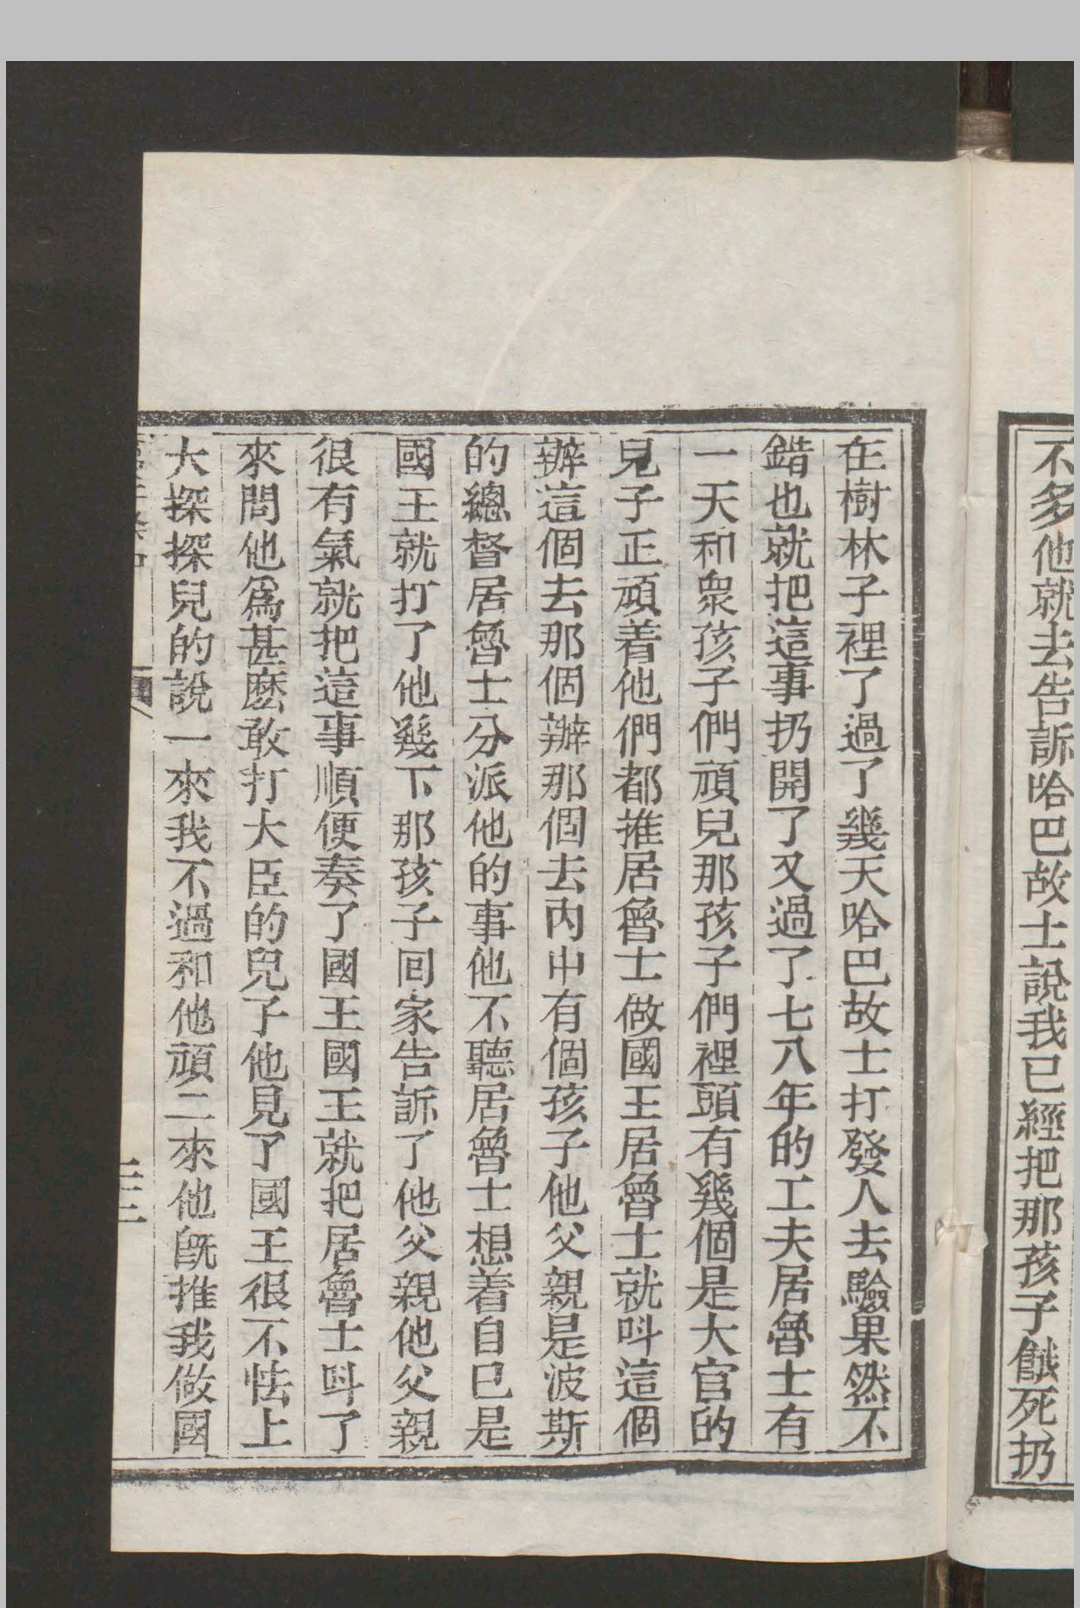 不多他就去告訴哈巴故士說我已經把那孩子餓死扔
在樹林子裡了過了幾天哈巴故士打發人去驗果然不
錯也就把這事扔開了又過了七八年的工夫居魯士有
一天和衆孩子們頑兒那孩子們裡頭有幾個是大官的
兒子正頑着他們都推居魯士做國王居魯士就呌這個
辦這個去那個辦那個去內中有個孩子他父親是波斯
的總督居魯士分派他的事他不聽居魯士想着自己是
國王就打了他幾下那孩子回家告訴了他父親他父親
很有氣就把這事順便奏了國王國王就把居魯士呌了
來問他爲甚麽敢打大臣的兒子他見了國王很不怯上
大探探兒的說一來我不過和他頑二來他旣推我做國
二三